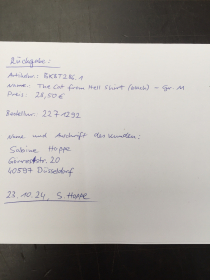 Rückgabe:
Artikelnr.: BKBT286.1
Name: The Cat from Hell Shirt (black) - Gr. M
Preis: 28,50€
Bestellnr.: 2271292
Name und Anschrift des Kunden:
Sabine Hoppe
20
40597 Düsseldorf
23.10.24, S. Hoppe